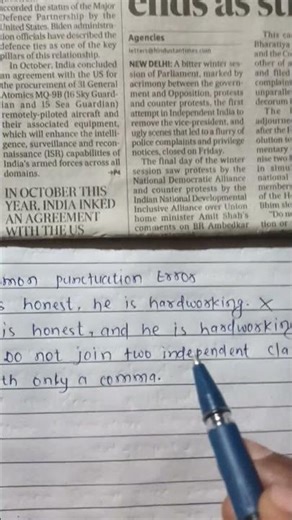 accorded the status of the Major
Defence Partnership by the
United States. Biden administra-
tion officials have described the
defence ties as one of the key
pillars of this relationship.
In October, India concluded
an agreement with the US for
the procurement of 31 General
Atomics MQ-9B (16 Sky Guard-
ian and 15 Sea Guardian)
remotely-piloted aircraft and
their associated equipment,
which will enhance the intelli-
gence, surveillance and recon-
naissance (ISR) capabilities of
India's armed forces across all
domains.
IN OCTOBER THIS
YEAR, INDIA INKED
AN AGREEMENT
WITH THE US
ends as st
Agencies
letters@hindustantimes.com
NEW DELHI: A bitter winter ses-
sion of Parliament, marked by
acrimony between the govern-
ment and Opposition, protests
and counter protests, the first
attempt in Independent India to
remove the vice-president, and
ugly scenes that led to a flurry of
police complaints and privilege
notices, closed on Friday.
The final day of the winter
session saw protests by the
National Democratic Alliance
and counter protests by the
Indian National Developmental
Inclusive Alliance over Union
home minister Amit Shah's
comments on BR Ambedkar
This ca
Bharatiya
and the Co
other of a
and filed
complain
unparalle
decorum i
The
adjourn
after the l
olution to
mentary
nise two
in simu
national
members
of the H
Bhim slo
"Do n
tion or
mon punctuation Error
s honest, he is hardworking. X
is honest, and he is hardworking
Do not join two independent cla
th only a comma.